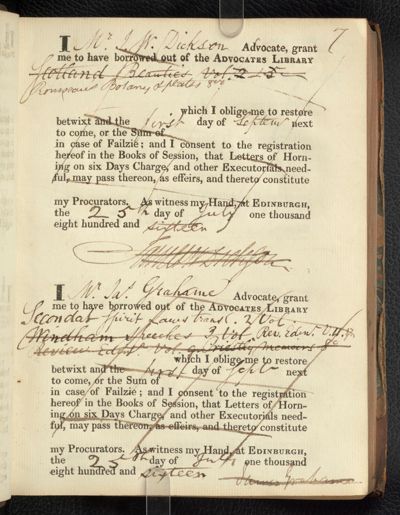 7
I Mr. J. W. Dickson Advocate, grant
me to have borrowed out of the ADVOCATES LIBRARY
Scotland Beauties Vol. 2 5
Botany plates 8vo
which I oblige me to restore
betwixt and the first day of Septem next
to come, or the Sum of
in case of Failzié; and I consent to the registration
hereof in the Books of Session, that Letters of Horn-
ing on six Days Charge, and other Executorials need-
ful, may pass thereon, as effeirs, and thereto constitute
my Procurators. As witness my Hand, at EDINBURGH,
the 25th day of July one thousand
eight hundred and sixteen
I Mr. Jas. Grahame Advocate, grant
me to have borrowed out of the ADVOCATES LIBRARY
Secondat Spirit Laws transl. 2 Vol.
Windham Speeches 3 Vol. Rev. Edinr.
Review Edinr. Vol. Priestley Memoirs 8o
which I oblige me to restore
betwixt and the first day of Sept next
to come, or the Sum of
in case of Failzié; and I consent to the registration
hereof in the Books of Session, that Letters of Horn-
ing on six Days Charge, and other Executorials need-
ful, may pass thereon, as effeirs, and thereto constitute
my Procurators. As witness my Hand, at EDINBURGH,
the 25th day of July one thousand
eight hundred and sixteen
James Grahame